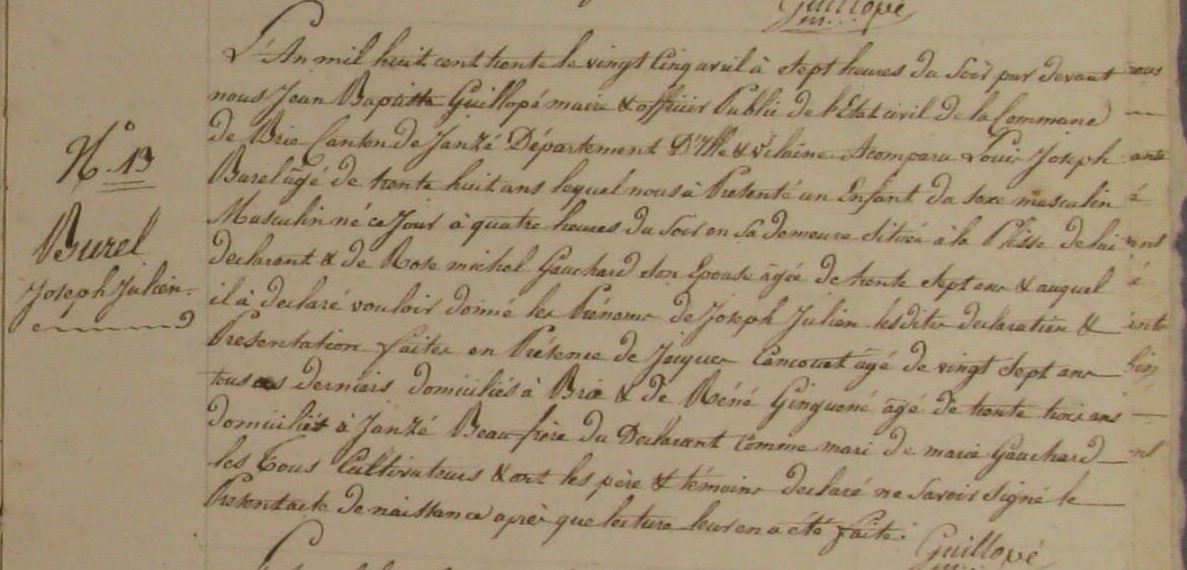 Guillopé
N.° 13
Burel
Joseph Julien
L'An mil huit cent trente le vingt cinq avril à sept heures du soir par devant
nous Jean Baptiste Guillopé maire & officier Public de l'Etat civil de la Commune
de Brie Canton de Janzé Département D'Ille & Vilaine A comparu Louis Joseph
Burel âgé de trente huit ans lequel nous à Présenté un Enfant du sexe masculin
Masculin né ce Jour à quatre heures du Soir en sa demeure située à la Plisse de lui
declarant & de Rose michel Gauchard son Epouse âgée de trente sept ans & auquel
il à declaré vouloir donné les Prénoms de Joseph Julien lesdites declaration &
Presentation faites en Présence de Jacques Cancouet âgé de vingt sept ans
tous ces derniers domiciliés à Brie & de Réné Ginguené âgé de trente trois ans
domicilié à Janzé Beau frère du Declarant comme mari de marie Gauchard
les Tous Cultivateurs & ont les père & témoins declaré ne Savoir Signé le
Présent acte de naissance après que lecture leur en a été faite.
Guillopé